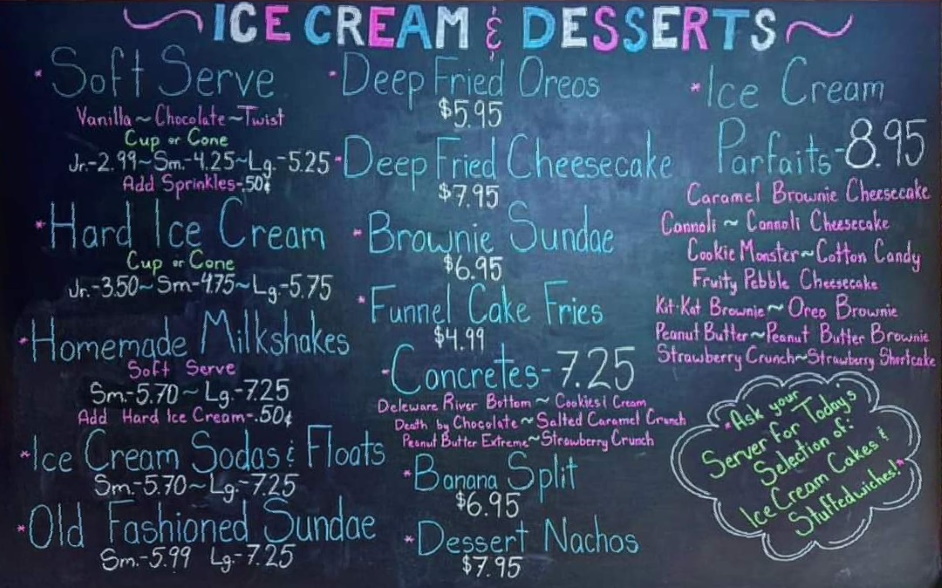 ICE CREAM & DESSERTS
*Soft Serve
Vanilla ~ Chocolate ~ Twist
Cup or Cone
Jr.-2.99~Sm.-4.25~Lg.-5.25
Add Sprinkles-.50¢
*Hard Ice Cream
Cup or Cone
Jr.-3.50~Sm-4.75~Lg.-5.75
*Homemade Milkshakes
Soft Serve
Sm.-5.70~Lg.-7.25
Add Hard Ice Cream-.50¢
*Ice Cream Sodas & Floats
Sm.-5.70~Lg.-7.25
*Old Fashioned Sundae
Sm.-5.99 Lg.-7.25
*Deep Fried Oreos
$5.95
*Deep Fried Cheesecake
$7.95
*Brownie Sundae
$6.95
*Funnel Cake Fries
$4.99
*Concretes-7.25
Deleware River Bottom ~ Cookies & Cream
Death by Chocolate ~ Salted Caramel Crunch
Peanut Butter Extreme~Strawberry Crunch
*Banana Split
$6.95
*Dessert Nachos
$7.95
*Ice Cream
Parfaits-8.95
Caramel Brownie Cheesecake
Cannoli ~ Cannoli Cheesecake
Cookie Monster~Cotton Candy
Fruity Pebble Cheesecake
Kit-Kat Brownie ~ Oreo Brownie
Peanut Butter~Peanut Butter Brownie
Strawberry Crunch~Strawberry Shortcake
*Ask your
Server for Today's
Selection of:
Ice Cream Cakes &
Stuffedwiches!*